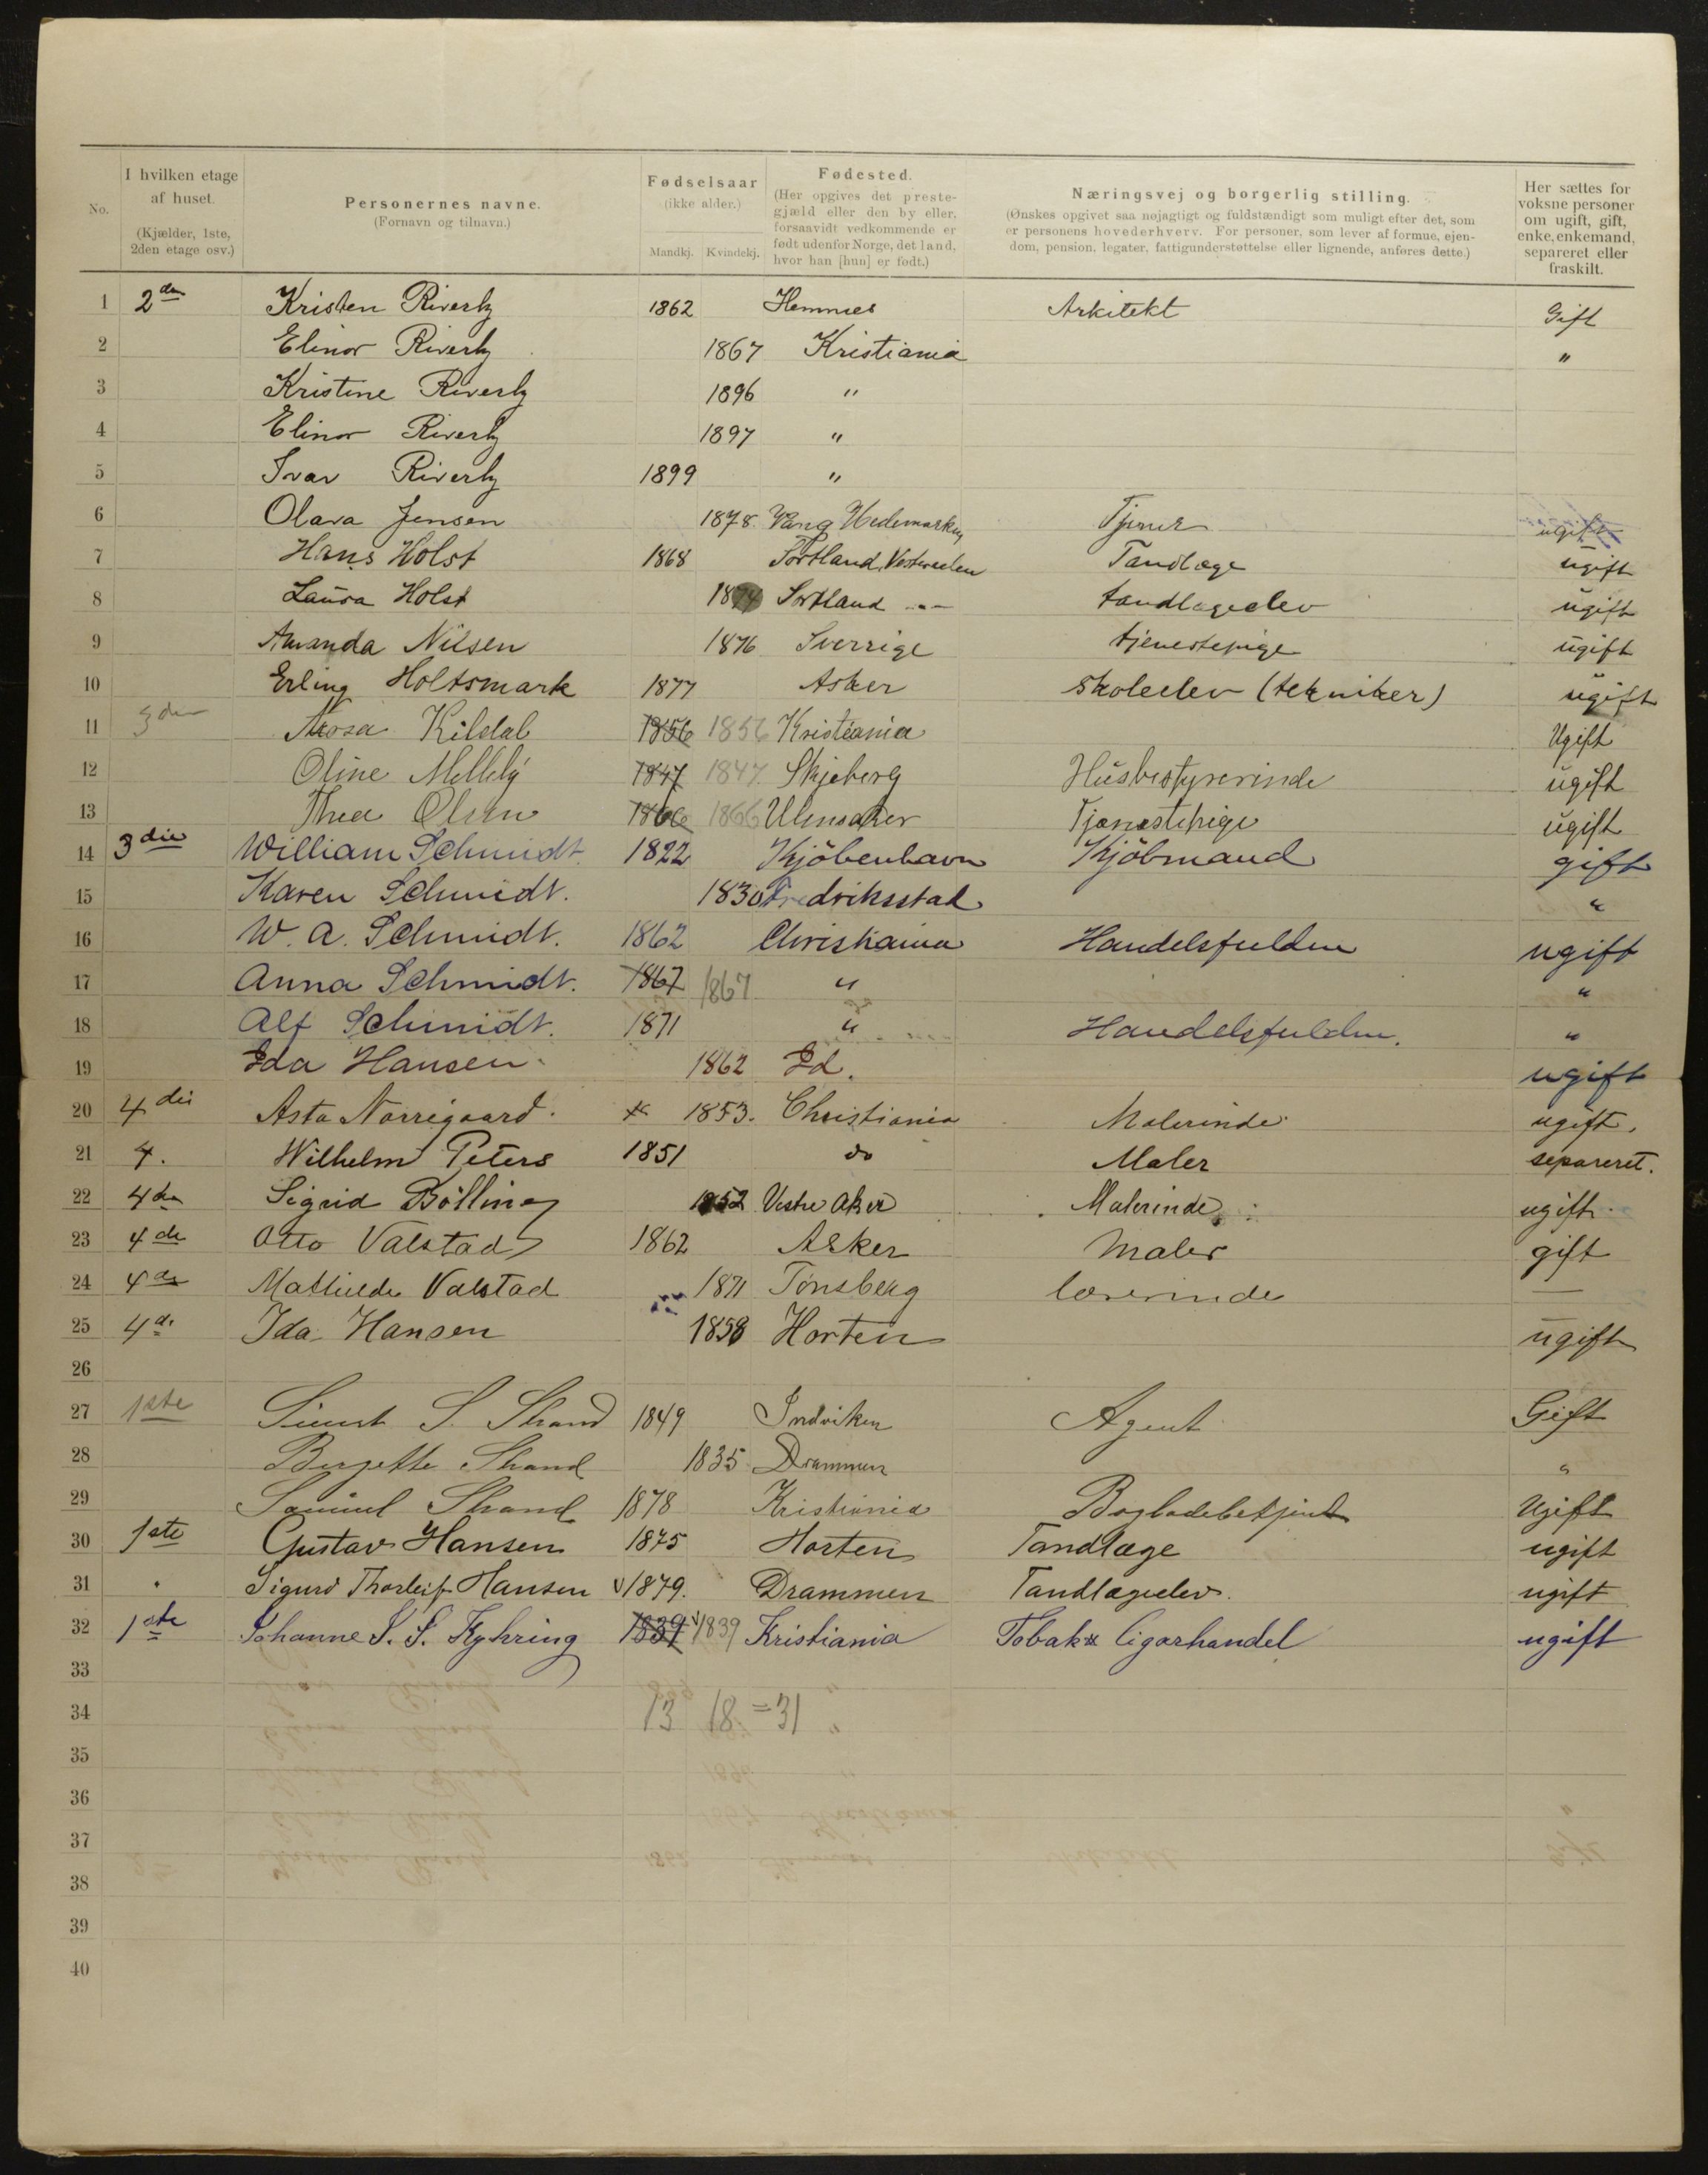 No.
I hvilken etage af huset. (Kjælder, 1ste, 2den etage osv.)
Personernes navne. (Fornavn og tilnavn.)
Fødselsaar (ikke alder.) Mandkj. Kvindekj.
Fødested. (Her opgives det prestegjæld eller den by eller, forsaavidt vedkommende er født udenfor Norge, det land, hvor han [hun] er født.)
Næringsvej og borgerlig stilling. (Ønskes opgivet saa nøjagtigt og fuldstændigt som muligt efter det, som er personens hovederhverv. For personer, som lever af formue, ejendom, pension, legater, fattigunderstøttelse eller lignende, anføres dette.)
Her sættes for voksne personer om ugift, gift, enke, enkemand, separeret eller fraskilt.
1 2den Kristen Riverly 1862 Hemnes Arkitekt Gift
2 Elinor Riverly 1867 Kristiania "
3 Kristine Riverly 1896 "
4 Elinor Riverly 1897 "
5 Ivar Riverly 1899 "
6 Olava Jensen 1878 Vang Hedemarken ugift
7 Hans Holst 1868 Sortland, Vesteraalen Tandlæge ugift
8 Laura Holst 1874 Sortland -"- tandlægeelev ugift
9 Amanda Nilsen 1876 Sverrige tjenestepige ugift
10 Erling Holtsmark 1877 Asker skoleelev (tekniker) ugift
11 3die Kildal 1856 1856 Kristiania Ugift
12 Oline Melleby 1847 1847 Skjeberg Husbestyrerinde ugift
13 Thea Olsen 1866 1866 Ullensaker Tjenestepige ugift
14 3die William Schmidt. 1822 Kjöbenhavn Kjöbmand gift
15 Karen Schmidt. 1830 Fredriksstad "
16 W. A. Schmidt. 1862 Christiania Handelsfuldm ugift
17 Anna Schmidt. 1867 1867 " "
18 Alf Schmidt. 1871 " Handelsfuldm. "
19 Ida Hansen. 1862 Id. ugift
20 4die Asta Nørregaard. 1853. Christiania Malerinde ugift.
21 4. Wilhelm Peters 1851 do Maler separeret.
22 4de Sigrid Bölling 1852 Vestre Aker Malerinde ugift.
23 4de Otto Valstad 1862 Asker Maler gift
24 4de Mathilde Valstad 1871 Tönsberg lærerinde —
25 4de Ida Hansen 1858 Horten ugift
26
27 1ste S. Strand 1849 Indviken Agent Gift
28 Bergette Strand 1835 Drammen "
29 Samuel Strand 1878 Kristiania Bogladebetjent Ugift
30 1ste Gustav Hansen 1875 Horten Tandlæge ugift
31 " Sigurd Thorleif Hansen 1879. Drammen Tandlægeelev. ugift
32 1ste Johanne S. S. Kyhring 1839 1839 Kristiania Tobak & Cigarhandel ugift
33
34 13 18 = 31
35
36
37
38
39
40